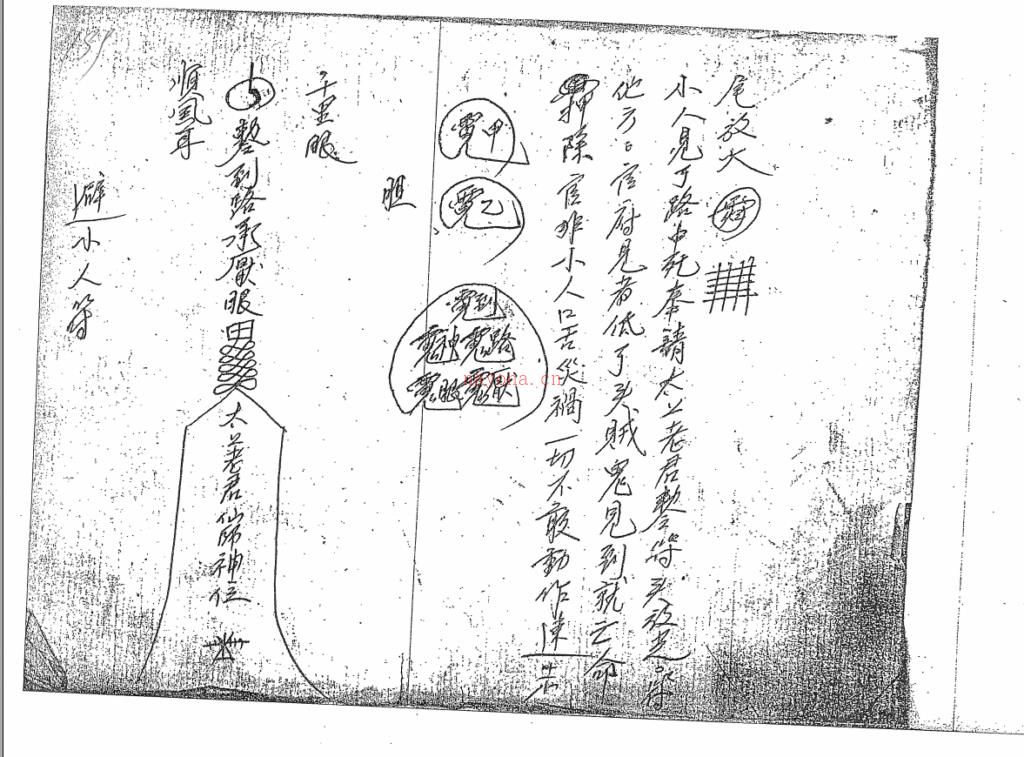 尾放大
小人見了路中死奉請太上老君敕令符头放光符
他方官府見者低了头賊鬼見到就亡命
掃除官非小人口舌災禍一切不敢動作速
甲
乙
到
神 路
眼
胆
千里眼
到路承厭眼
太上老君仙師神位
順風耳
小人符
131